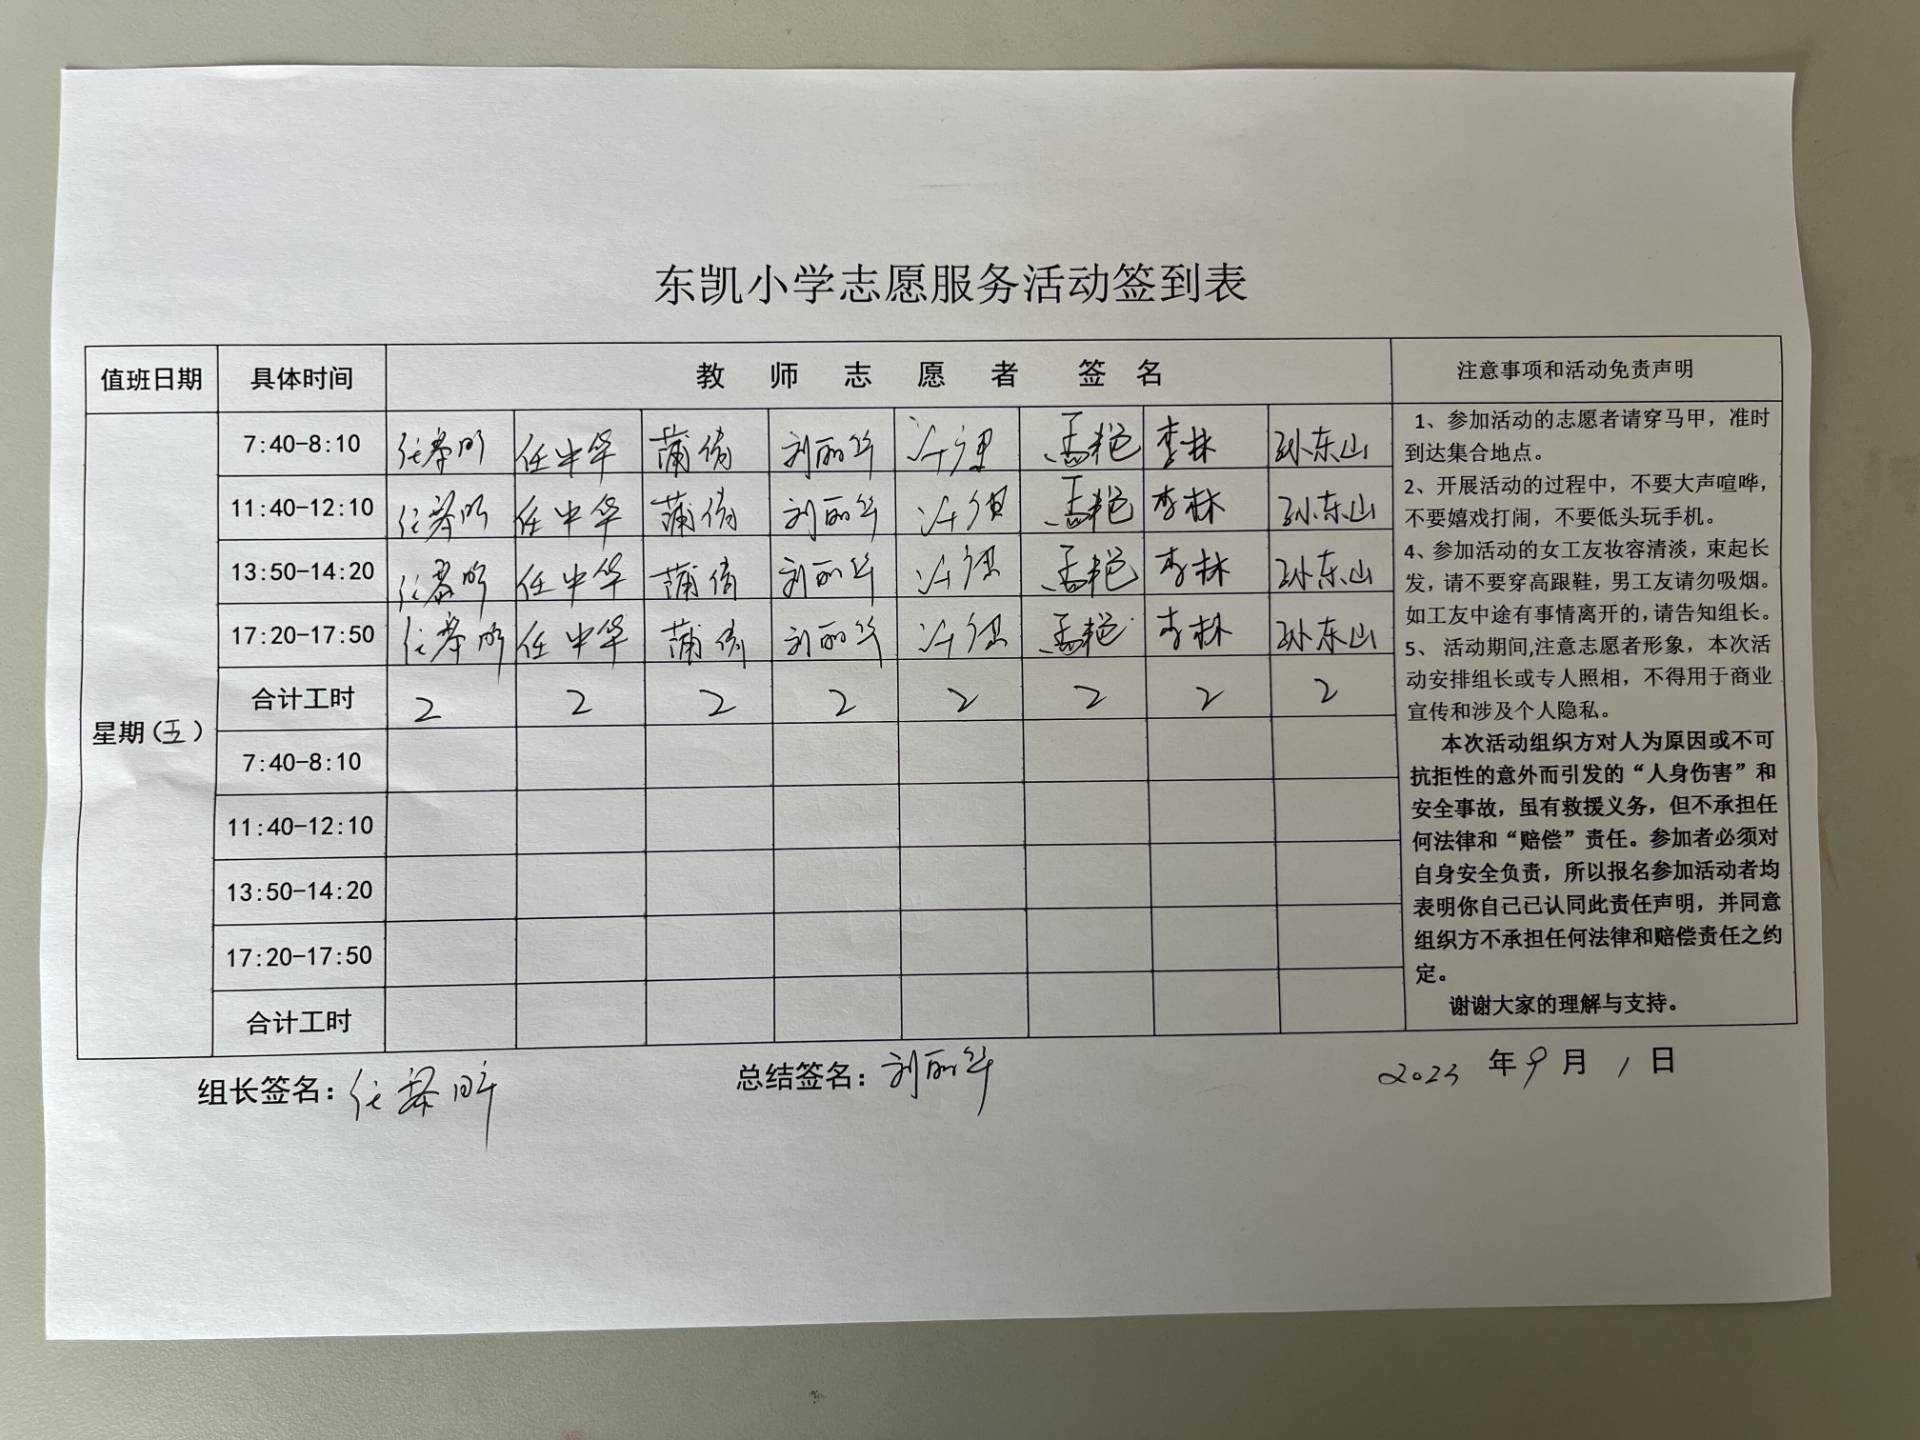 东凯小学志愿服务活动签到表
值班日期 具体时间 教 师 志 愿 者 签 名 注意事项和活动免责声明
星期（五）
7:40-8:10 任中华 蒲倩 刘丽华 孟艳 李林 孙东山
11:40-12:10 任中华 蒲倩 刘丽华 孟艳 李林 孙东山
13:50-14:20 任中华 蒲倩 刘丽华 孟艳 李林 孙东山
17:20-17:50 任中华 蒲倩 刘丽华 孟艳 李林 孙东山
合计工时 2 2 2 2 2 2 2 2
7:40-8:10
11:40-12:10
13:50-14:20
17:20-17:50
合计工时
1、参加活动的志愿者请穿马甲，准时
到达集合地点。
2、开展活动的过程中，不要大声喧哗，
不要嬉戏打闹，不要低头玩手机。
4、参加活动的女工友妆容清淡，束起长
发，请不要穿高跟鞋，男工友请勿吸烟。
如工友中途有事情离开的，请告知组长。
5、 活动期间,注意志愿者形象，本次活
动安排组长或专人照相，不得用于商业
宣传和涉及个人隐私。
本次活动组织方对人为原因或不可
抗拒性的意外而引发的“人身伤害”和
安全事故，虽有救援义务，但不承担任
何法律和“赔偿”责任。参加者必须对
自身安全负责，所以报名参加活动者均
表明你自己已认同此责任声明，并同意
组织方不承担任何法律和赔偿责任之约
定。
谢谢大家的理解与支持。
组长签名： 总结签名：刘丽华 2023 年 9 月 1 日